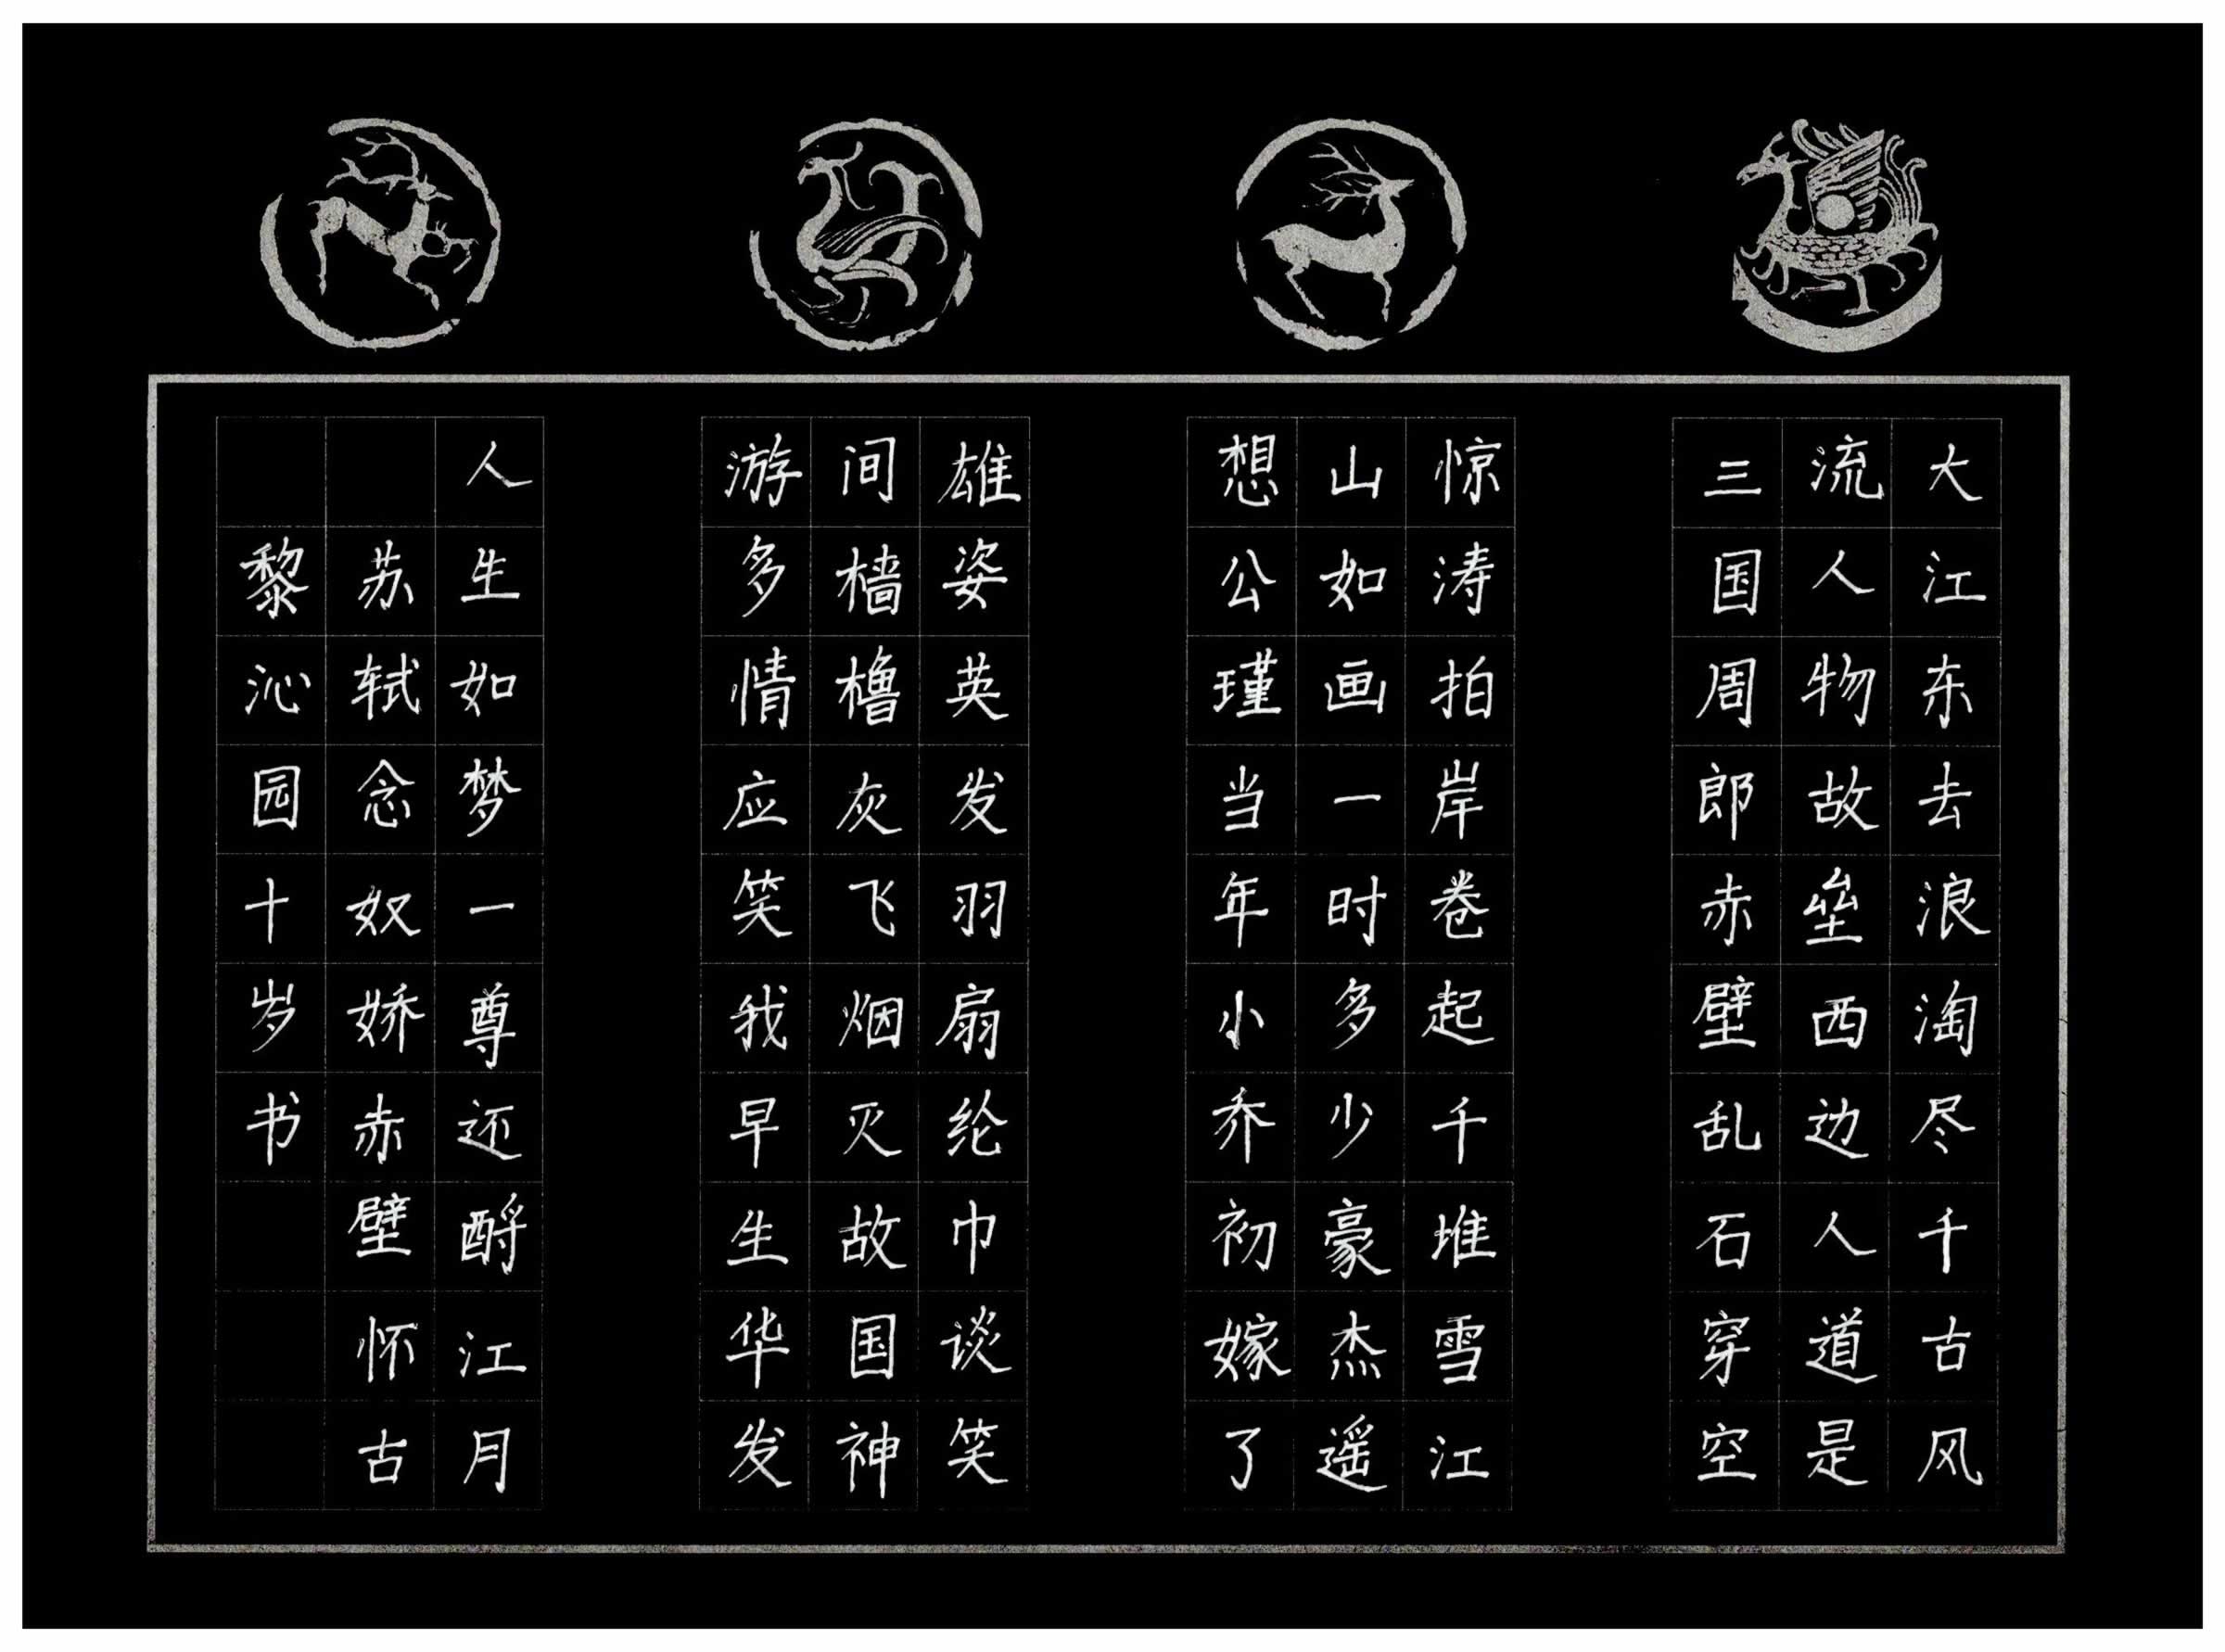 大江东去浪淘尽千古风
流人物故垒西边人道是
三国周郎赤壁乱石穿空
惊涛拍岸卷起千堆雪江
山如画一时多少豪杰遥
想公瑾当年小乔初嫁了
雄姿英发羽扇纶巾谈笑
间樯橹灰飞烟灭故国神
游多情应笑我早生华发
人生如梦一尊还酹江月
苏轼念奴娇赤壁怀古
黎沁园十岁书